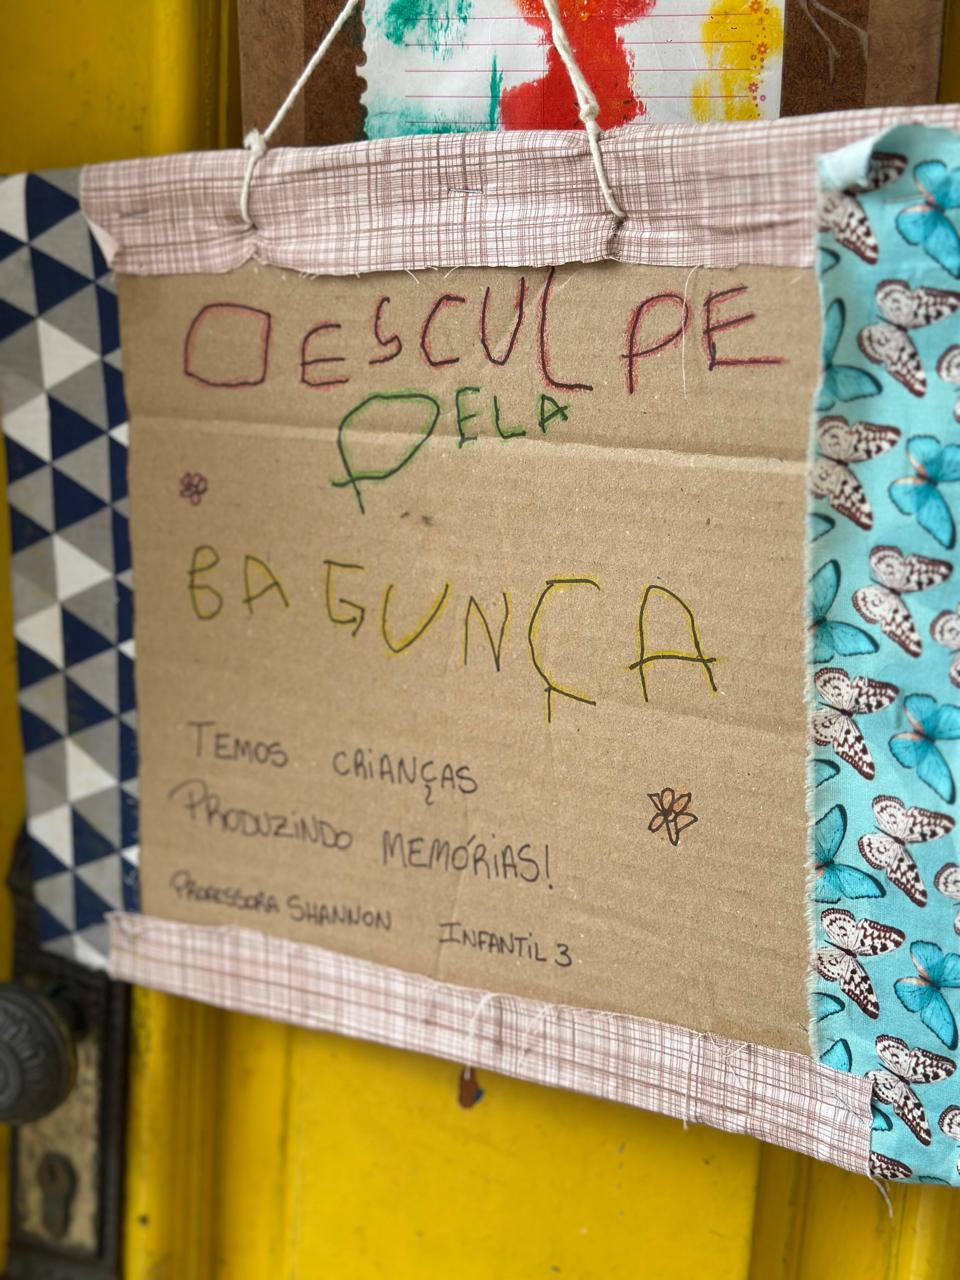 DESCULPE
PELA
BAGUNÇA
TEMOS CRIANÇAS
PRODUZINDO MEMÓRIAS!
PROFESSORA SHANNON INFANTIL 3